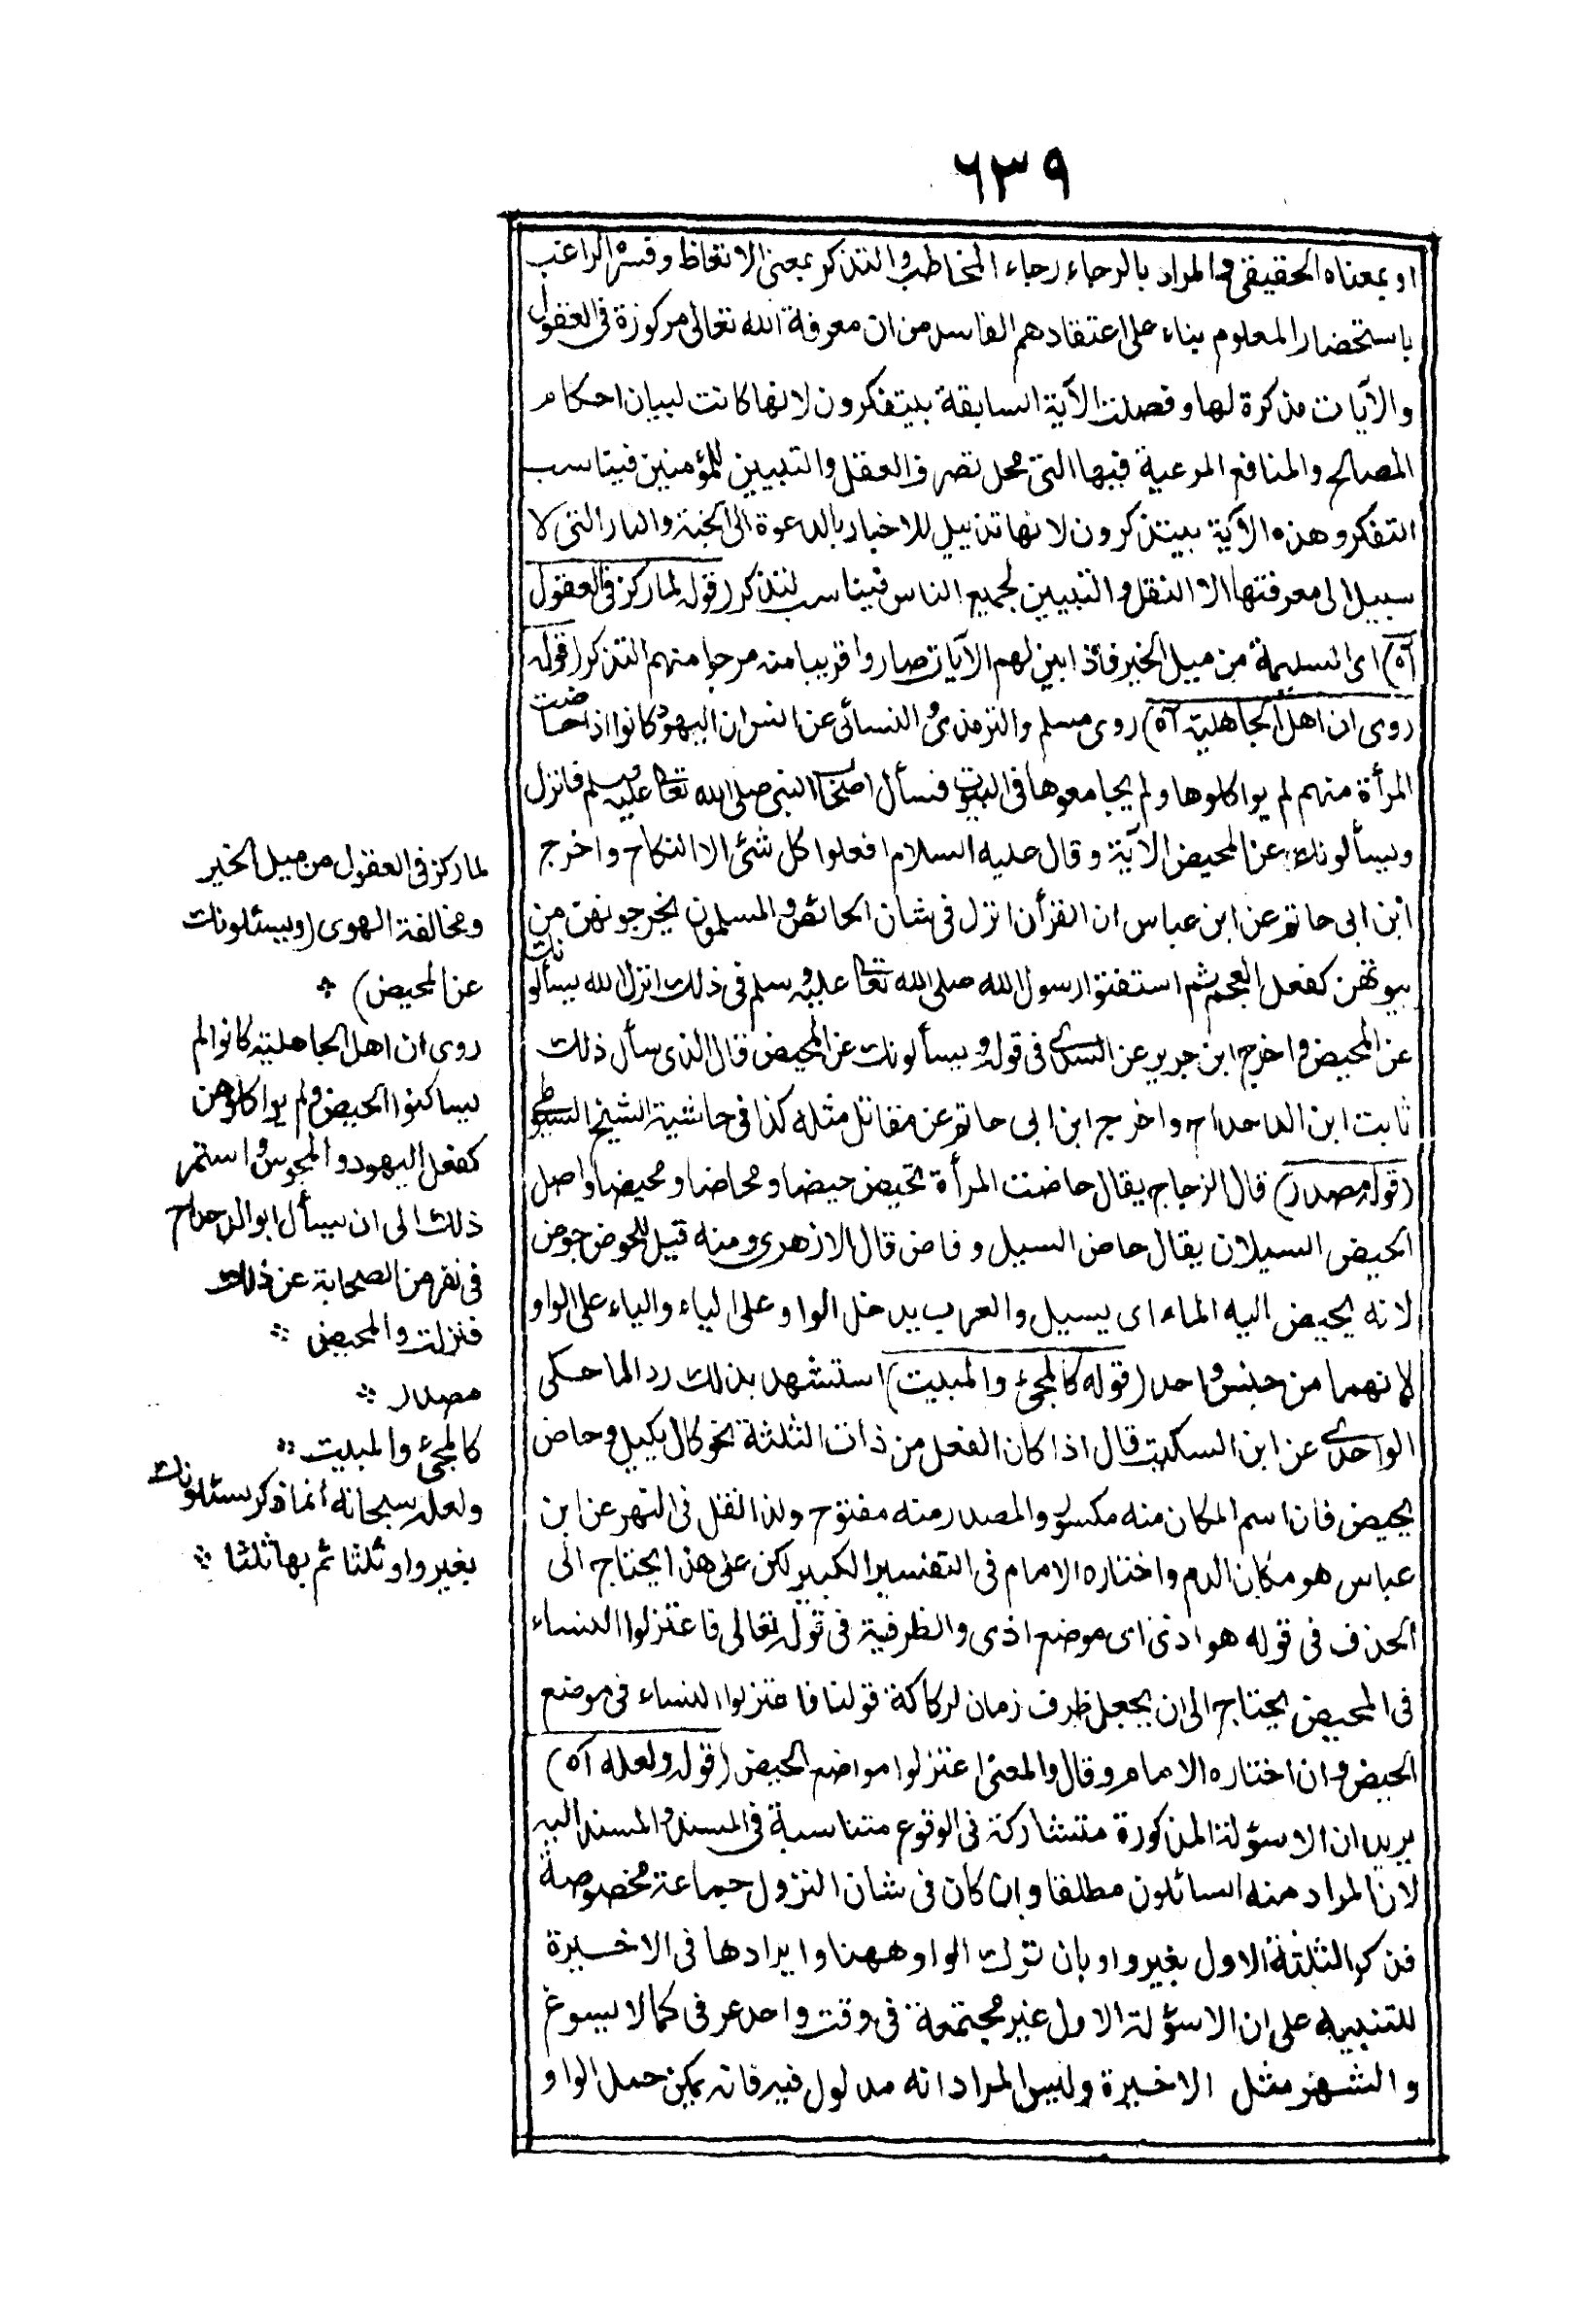 ٦٣٩
او بمعناه الحقيقى والمراد بالرجاء رجاء المخاطب والتذكر بمعنى الاتعاظ وفسر الراغب
باستحضار المعلوم بناء على اعتقادهم الفاسد من ان معرفة الله تعالى مركوزة فى العقول
والآيات مذكرة لها وفصلت الآية السابقة بيتفكرون لانها كانت لبيان احكام
المصالح والمنافع المرعية فيها التى محل تصرف العقل والتبيين للمؤمنين فيناسب
التفكر وهذه الآية بيتذكرون لانها تذييل للاخبار بالدعوة الى الجنة والنار التى لا
سبيل الى معرفتها الا النقل والتبيين لجميع الناس فيناسب لتذكر (قوله لما ركز فى العقول
آه) اى السليمة من ميل الخير فاذا بين لهم الآيات صاروا قريبا منه مرجوا منهم التذكر (قوله
روى ان اهل الجاهلية آه) روى مسلم والترمذى والنسائى عن انس ان اليهود كانوا اذا حاضت
المرأة منهم لم يواكلوها ولم يجامعوها فى البيوت فسأل اصحاب النبى صلى الله تعالى عليه وسلم فانزل
ويسألونك عن المحيض الآية وقال عليه السلام افعلوا كل شئ الا النكاح واخرج
ابن ابى حاتم عن ابن عباس ان القرأن انزل فى شان الحائض والمسلمون يخرجونهن من
بيوتهن كفعل العجم ثم استفتوا رسول الله صلى الله تعالى عليه وسلم فى ذلك انزل الله يسألونك
عن المحيض واخرج ابن جرير عن السدى فى قوله ويسألونك عن المحيض قال الذى سأل ذلك
ثابت ابن الدحداح واخرج ابن ابى حاتم عن مقاتل مثله كذا فى حاشية الشيخ السيوطى
(قوله مصدر) قال الزجاج يقال حاضت المرأة تحيض حيضا ومحاضا ومحيضا واصل
الحيض السيلان يقال حاض السيل وفاض قال الازهرى ومنه قيل للحوض حوض
لانه يحيض اليه الماء اى يسيل والعرب يدخل الواو على الياء والياء على الواو
لانهما من جنس واحد (قوله كالمجئ والمبيت) استشهد بذلك رد الما حكى
الواحدى عن ابن السكيت قال اذا كان الفعل من ذات الثلثة نحو كال يكيل وحاض
يحيض فان اسم المكان منه مكسور والمصدر منه مفتوح ولذا نقل فى النهر عن ابن
عباس هو مكان الدم واختاره الامام فى التفسير الكبير لكن على هذا يحتاج الى
الحذف فى قوله هو اذى اى موضع اذى والظرفية فى قوله تعالى فاعتزلوا النساء
فى المحيض يحتاج الى ان يجعل ظرف زمان لركاكة قولنا فاعتزلوا النساء فى موضع
الحيض وان اختاره الامام وقال والمعنى اعتزلوا مواضع الحيض (قوله ولعله آه)
يريد ان الاسؤلة المذكورة متشاركة فى الوقوع متناسبة فى المسند والمسند اليه
لان المراد منه السائلون مطلقا وان كان فى شان النزول جماعة مخصوصة
فذكر الثلثة الاول بغير واو بان ترك الواو ههنا وايرادها فى الاخيرة
للتنبيه على ان الاسؤلة الاول غير مجتمعة فى وقت واحد عرفى كما لا يسوغ
والشهر مثل الاخيرة وليس المراد انه مدلول فيه فانه يمكن حمل الواو
لما ركز فى العقول من ميل الخير
ومخالفة الهوى (ويسئلونك
عن المحيض)
روى ان اهل الجاهلية كانوا لم
يساكنوا الحيض ولم يواكلوهن
كفعل اليهود والمجوس واستمر
ذلك الى ان يسأل ابو الدحداح
فى نفر من الصحابة عن ذلك
فنزلت والمحيض
مصدر
كالمجئ والمبيت
ولعله سبحانه انما ذكر يسئلونك
بغير واو ثلثا ثم بها ثلثا